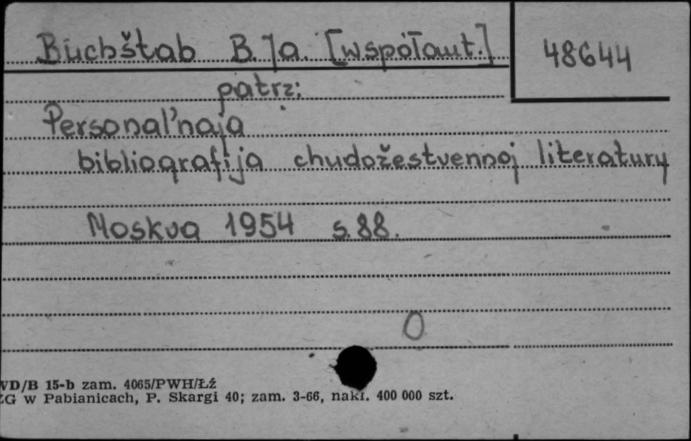 Bucbštab B. Ja. [współaut.] 48644
patrz:
Personal'naja
bibliografija chudožestvennoj literatury
Moskva 1954 s. 88.
0
WD/B 15-b zam. 4065/PWH/Łź
ZG w Pabianicach, P. Skargi 40; zam. 3-66, nakł. 400 000 szt.